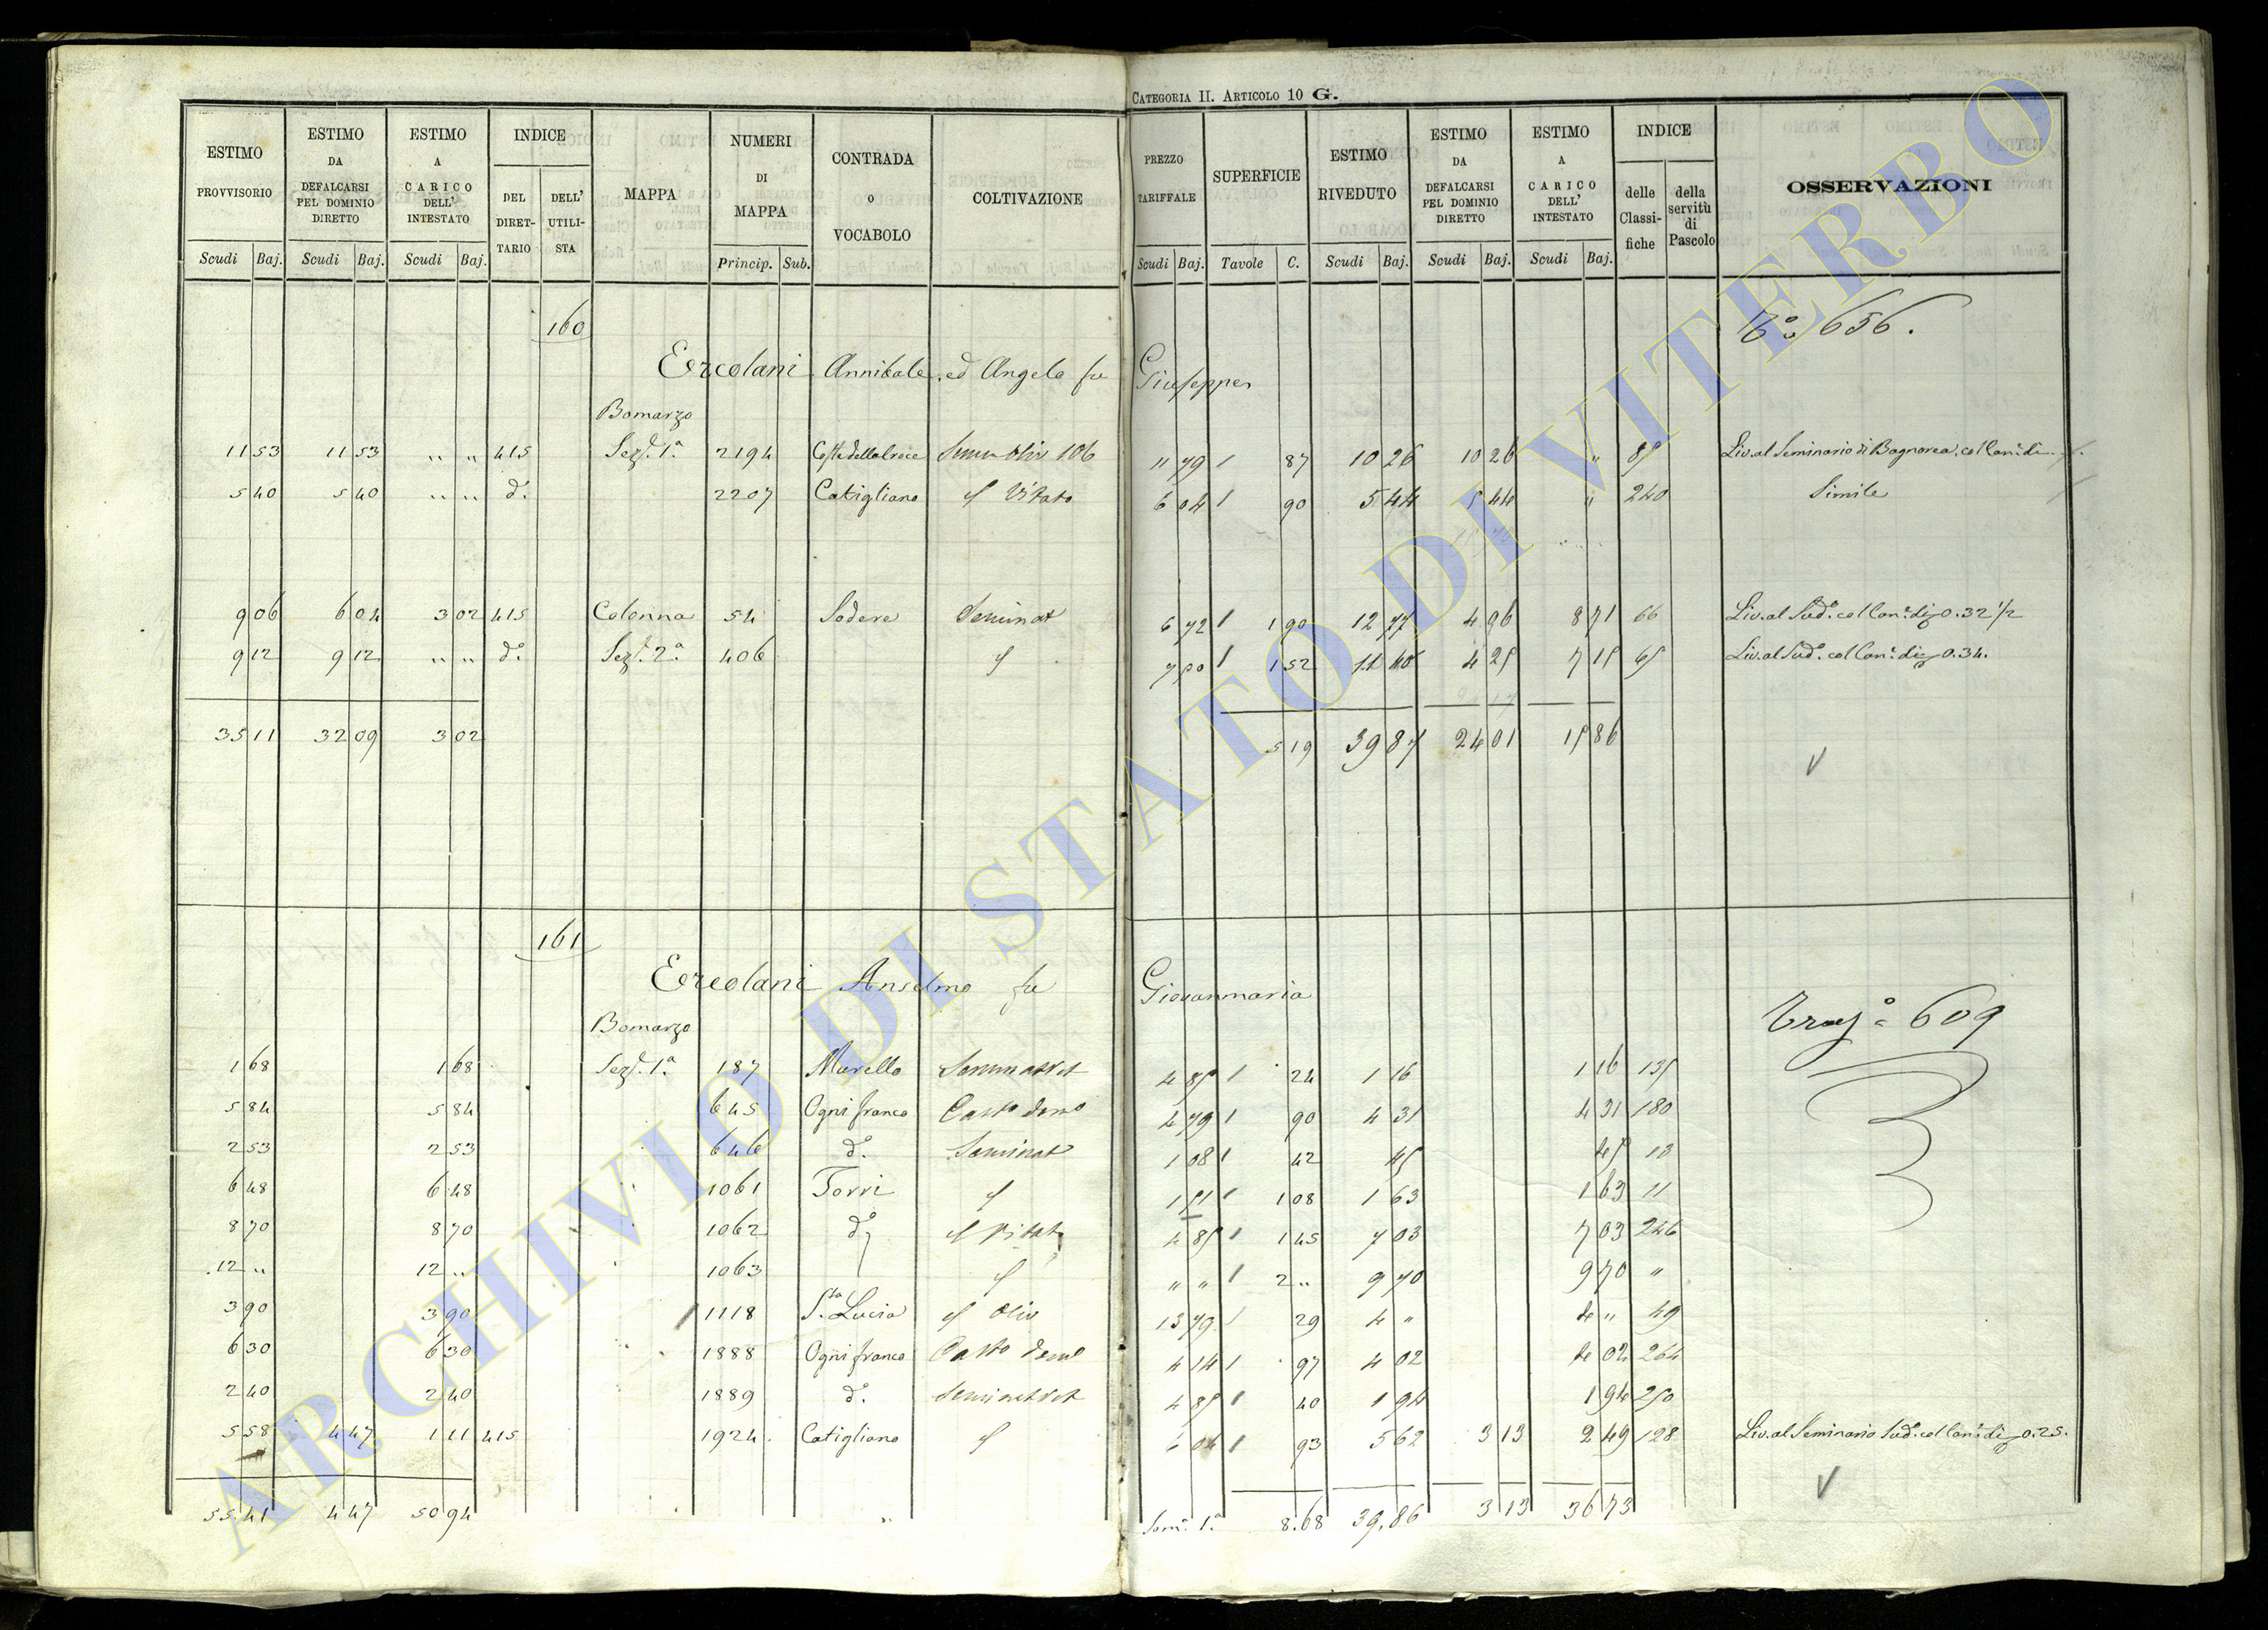 CATEGORIA II. ARTICOLO 10 G.
ESTIMO PROVVISORIO Scudi Baj. | ESTIMO DA DEFALCARSI PEL DOMINIO DIRETTO Scudi Baj. | ESTIMO A CARICO DELL' INTESTATO Scudi Baj. | INDICE DEL DIRET- TARIO | DELL' UTILI- STA | MAPPA | NUMERI DI MAPPA Princip. Sub. | CONTRADA o VOCABOLO | COLTIVAZIONE | PREZZO TARIFFALE Scudi Baj. | SUPERFICIE Tavole C. | ESTIMO RIVEDUTO Scudi Baj. | ESTIMO DA DEFALCARSI PEL DOMINIO DIRETTO Scudi Baj. | ESTIMO A CARICO DELL' INTESTATO Scudi Baj. | INDICE delle Classi- fiche | della servitù di Pascolo | OSSERVAZIONI
160 656.
Ercolani Annibale, ed Angelo fu Giuseppe
Bomarzo
11 53 11 53 " " 415 Sez. 1ª 2194 Costa della Croce 11 79 1 87 10 26 10 26 " 85 Liv. al Seminario di Bagnorea, col Can. di
5 40 5 40 " " d° 2207 Catigliano Vitato 6 04 1 90 5 44 5 44 " 240 Simile
9 06 6 04 3 02 415 Colonna 54 Sodere Seminat 6 72 1 1 90 12 77 4 96 8 71 66 Liv. al Sud° col Can. di 0.32 1/2
9 12 9 12 " " d° Sez. 2ª 406 7 50 1 1 52 11 40 4 25 7 15 65 Liv. al Sud° col Can. di 0.34.
35 11 32 09 3 02 5 19 39 87 24 01 15 86
161
Ercolani Anselmo fu Giovanmaria 609
Bomarzo
1 68 1 68 Sez. 1ª 187 Murello 4 85 1 24 1 16 1 16 135
5 84 5 84 645 Ogni franco 4 79 1 90 4 31 4 31 180
2 53 2 53 646 d° Seminat 1 08 1 42 45 45 10
6 48 6 48 1061 Torri 1 51 1 1 08 1 63 1 63 11
8 70 8 70 1062 d° Vitat 4 85 1 1 45 7 03 7 03 246
12 " 12 " 1063 " " 1 2 " 9 70 9 70 "
3 90 3 90 1118 Sta Lucia Oliv 13 79 1 29 4 " 4 " 49
6 30 6 30 1888 Ogni franco 4 14 1 97 4 02 4 02 264
2 40 2 40 1889 d° 4 85 1 40 1 94 1 94 250
5 58 4 47 1 11 415 1924 Catigliano 6 04 1 93 5 62 3 13 2 49 128 Liv. al Seminario Sud° col Can. di 0.25.
55 41 4 47 50 94 Som. 1ª 8.68 39.86 3 13 36 73
ARCHIVIO DI STATO DI VITERBO